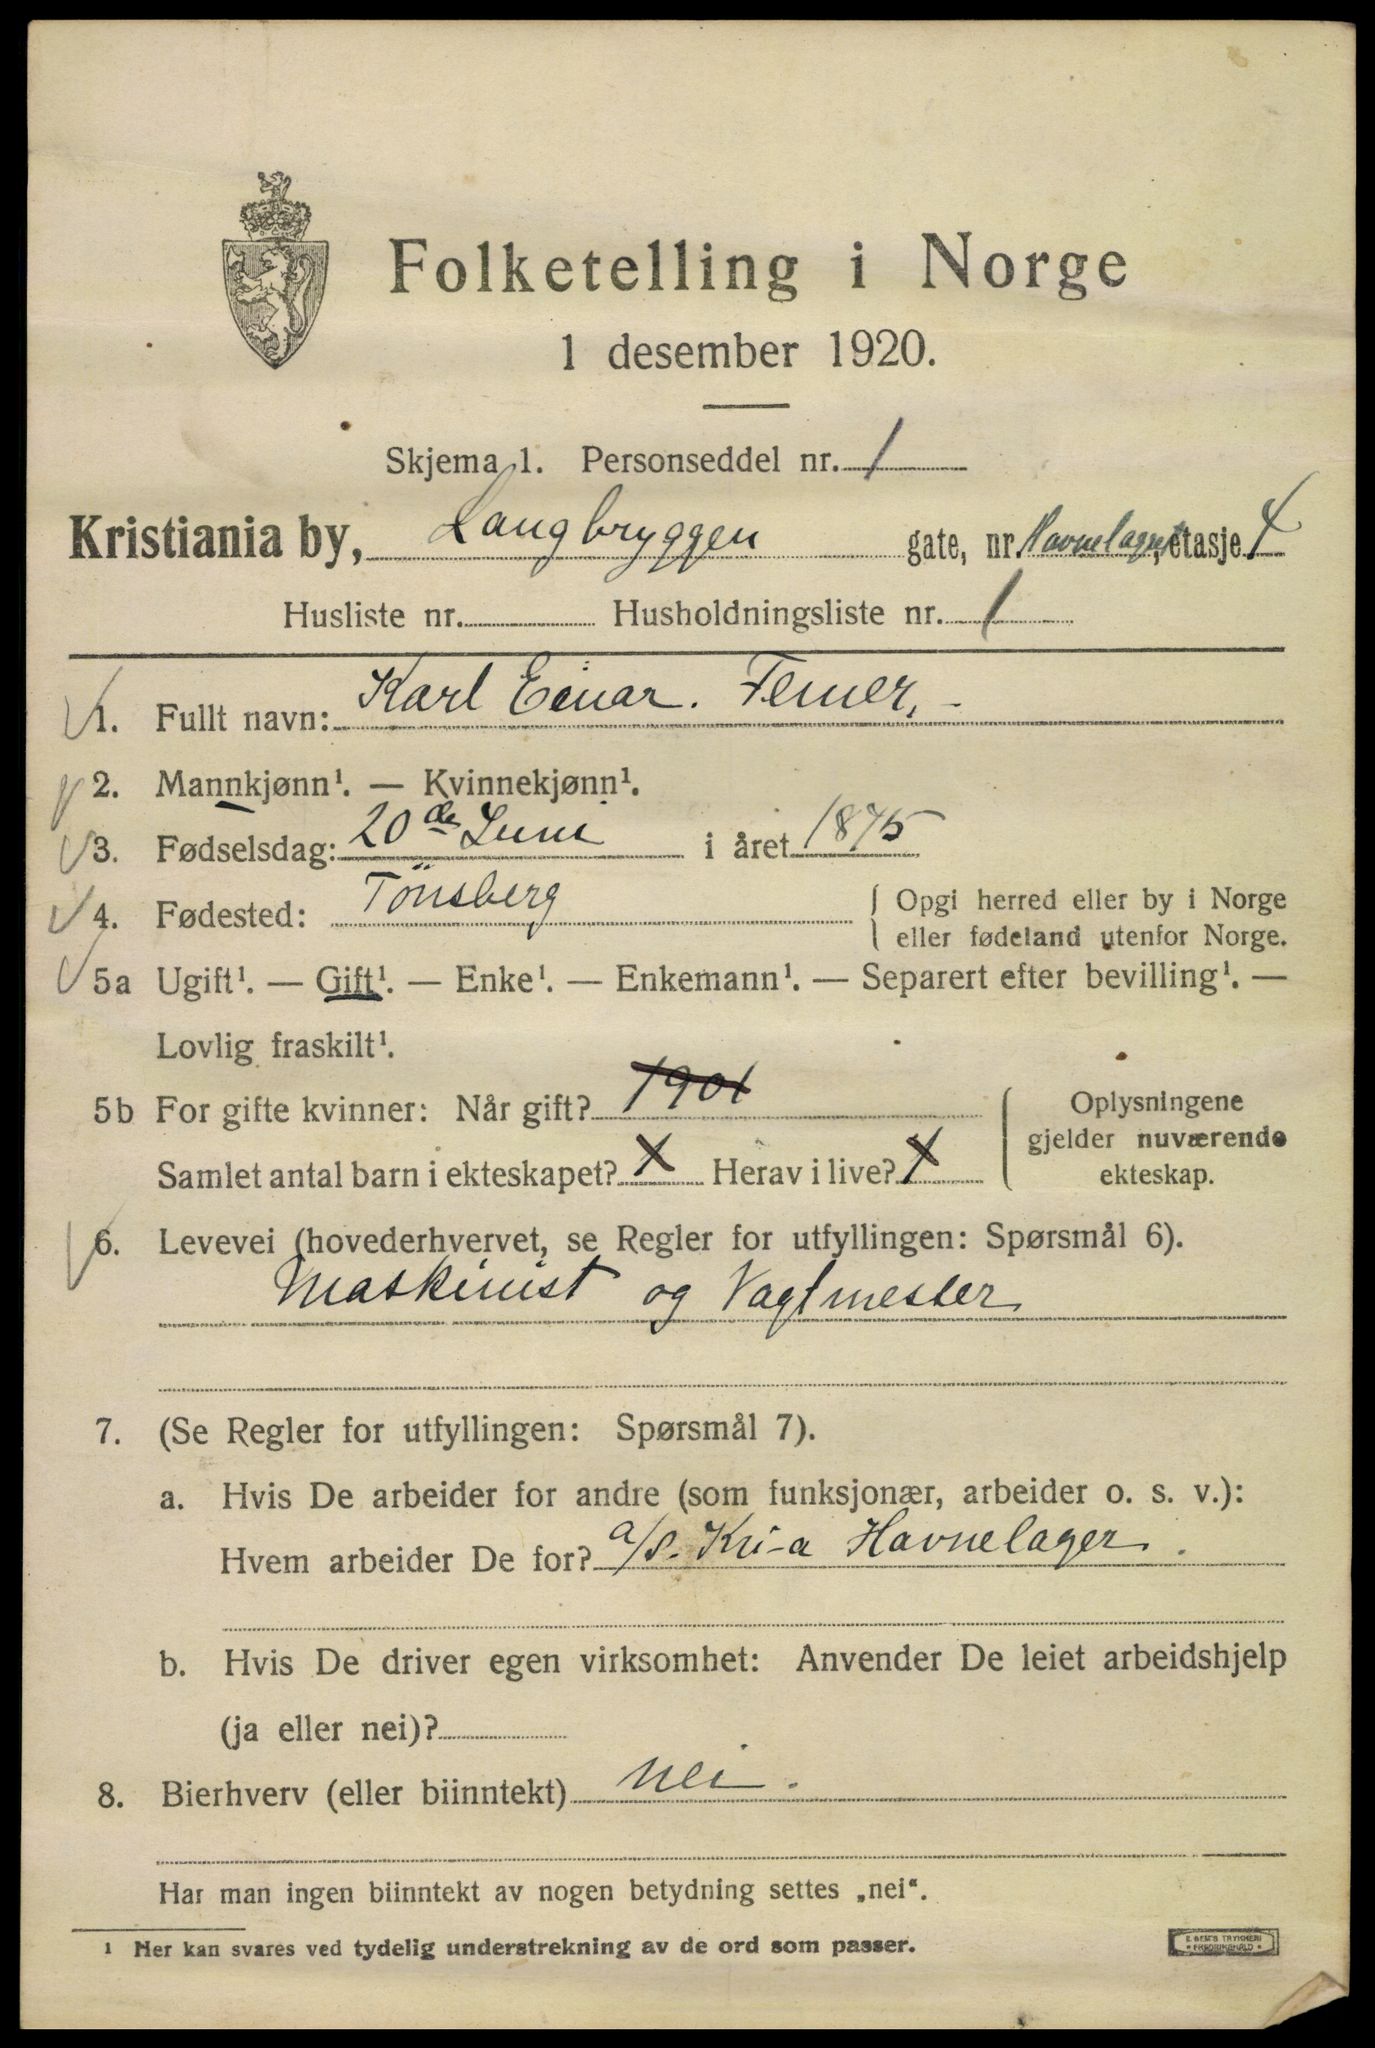 Folketelling i Norge
1 desember 1920.
Skjema 1. Personseddel nr. 1
Kristiania by, Langbryggen gate, nr. Havnelageret, etasje 4
Husliste nr. Husholdningsliste nr. 1
1. Fullt navn: Karl Einar. Ferner.
2. Mannkjønn¹. — Kvinnekjønn¹.
3. Fødselsdag: 20de Juni i året 1875
4. Fødested: Tönsberg { Opgi herred eller by i Norge
eller fødeland utenfor Norge.
5a Ugift¹. — Gift¹. — Enke¹. — Enkemann¹. — Separert efter bevilling¹. —
Lovlig fraskilt¹.
5b For gifte kvinner: Når gift? 1901 { Oplysningene
gjelder nuværende
Samlet antal barn i ekteskapet? X Herav i live? X ekteskap.
6. Levevei (hovederhvervet, se Regler for utfyllingen: Spørsmål 6).
Maskinist og Vagtmester
7. (Se Regler for utfyllingen: Spørsmål 7).
a. Hvis De arbeider for andre (som funksjonær, arbeider o. s. v.):
Hvem arbeider De for? a/s. Kri-a Havnelager.
b. Hvis De driver egen virksomhet: Anvender De leiet arbeidshjelp
(ja eller nei)?
8. Bierhverv (eller biinntekt) nei.
Har man ingen biinntekt av nogen betydning settes „nei“.
¹ Her kan svares ved tydelig understrekning av de ord som passer.